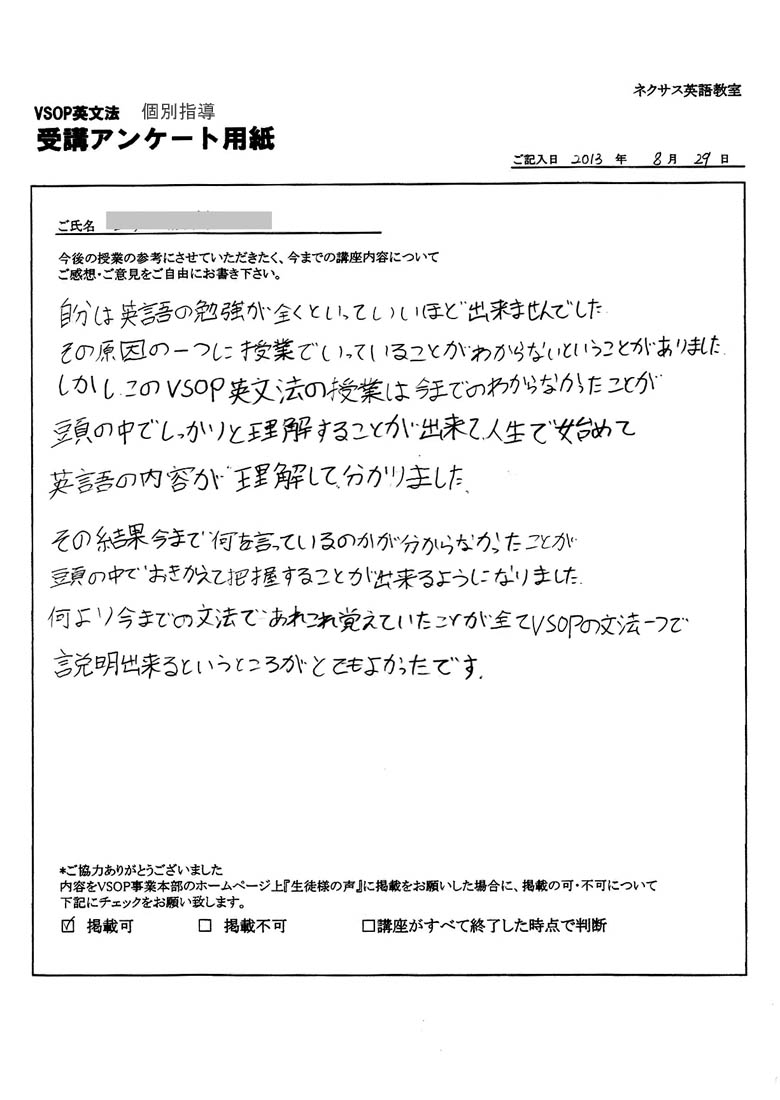 ネクサス英語教室
VSOP英文法 個別指導
受講アンケート用紙
ご記入日 2013 年 8 月 29 日
ご氏名
今後の授業の参考にさせていただきたく、今までの講座内容について
ご感想・ご意見をご自由にお書き下さい。
自分は英語の勉強が全くといっていいほど出来ませんでした
その原因の一つに授業でいっていることがわからないということがありました.
しかし、このVSOP英文法の授業は今までのわからなかったことが
頭の中でしっかりと理解することが出来て、人生で始めて
英語の内容が理解して、分かりました.
その結果今まで何を言っているのかが分からなかったことが
頭の中でおきかえて把握することが出来るようになりました.
何より今までの文法であれこれ覚えていたことが全てVSOPの文法一つで
説明出来るというところがとてもよかったです.
*ご協力ありがとうございました
内容をVSOP事業本部のホームページ上『生徒様の声』に掲載をお願いした場合に、掲載の可・不可について
下記にチェックをお願い致します。
☑ 掲載可 □ 掲載不可 □講座がすべて終了した時点で判断